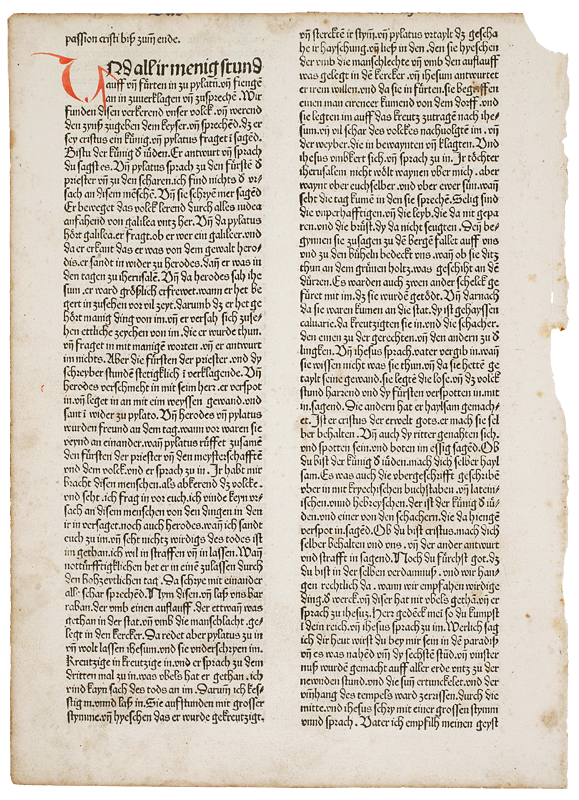 passion cristi biß zum ende.
Vnd all ir menig stund
auff vñ fürten in zu pylatũ. vñ fiengẽ
an in zuuerklagen vñ zusprechẽ. Wir
funden disen verkerend vnser volck. vñ werend
den zynß zugeben dem keyser. vñ sprechẽd. dz er
sey cristus ein künig. vñ pylatus fraget in sagẽd.
Bistu der künig d̾ iüden. Er antwurt vñ sprach
du sagst es. Vñ pylatus sprach zu den fürstẽ d̾
priester vñ zu den scharen. ich find nichts d̾ vr⸗
sach an disem mẽschẽ. Vñ sie schryẽ mer sagẽd
Er beweget das volck lerend durch alles iudea
anfahend von galilea vntz her. Vñ da pylatus
hört galilea. er fragt. ob er wer ein galileer. vnd
da er erkant das er was von dem gewalt hero⸗
dis. er sandt in wider zu herodes. dañ er was in
den tagen zu iherusalẽ. Vñ da herodes sah ihe
sum. er ward größlich erfrewet. wann er het be
gert in zusehen vor vil zeyt. darumb dz er het ge
hört manig ding von im. vñ er versah sich zuse⸗
hen ettliche zeychen von im. die er wurde thun.
vñ fraget in mit manigẽ worten. vñ er antwurt
im nichts. Aber die fürsten der priester. vnd dy
schreyber stundẽ stetigklich in verklagende. Vñ
herodes verschmeht in mit seim her. er verspot
in. vñ leget in an mit eim weyssen gewand. vnd
sant in wider zu pylato. Vñ herodes vñ pylatus
wurden freund an dem tag. wann vor waren sie
veynd an einander. wañ pylatus rüffet zusamẽ
den fürsten der priester vñ den meysterschafftẽ
vnd dem volck. vnd er sprach zu in. Ir habt mir
bracht disen menschen. als abkerend dz volck.
vnd seht. ich frag in vor euch. ich vinde keyn vr⸗
sach an disem menschen von den dingen in den
ir in versaget. noch auch herodes. wañ ich sandt
euch zu im. vñ seht nichtz wirdigs des todes ist
im gethan. ich wil in straffen vñ in lassen. Wañ
nottürfftigklichen het er in eine zulassen durch
den hohzeytlichen tag. Da schrye mit einander
alle schar sprechẽd. Nym disen. vñ laß vns bar
raban. der vmb einen auflauff. der ettwañ was
gethan in der stat. vñ vmb die manschlacht. ge⸗
legt in den kercker. Da redet aber pylatus zu in
vñ wolt lassen ihesum. vnd sie vnderschryen im.
Kreutzige in kreutzige in. vnd er sprach zu dem
dritten mal zu in. was vbels hat er gethan. ich
vind kayn sach des tods an im. Darum ich kes⸗
tig in. vnnd laß in. Sie auffstunden mit grosser
stymme. vñ hyeschen das er wurde gekreutzigt.
vñ sterckẽ ir stym̃. vñ pylatus vrtaylt dz gescha
he ir hayschung. vñ ließ in den. den sie hyeschen
der vmb die manschlechte vñ den aufflauff
was gelegt in den kercker. vñ ihesum antwurtet
er irem willen. vnd da sie in fürten. sie begriffen
einen man cireneer kumend von dem dorff. vnd
sie legten im auff das kreutz zutragẽ nach ihe⸗
sum. vñ vil schar des volckes nachuolgtẽ im. vñ
der weyber. die in bewaynten vñ klagten. Vnd
ihesus vmbkert sich. vñ sprach zu in. Ir töchter
iherusalem nicht wölt waynen vber mich. aber
waynt vber euchselber. vnd vber ewer sün. wañ
seht die tag kumẽ in den sie sprechẽ. Selig sind
die vnperhafftigen. vñ die leyb. die da nit gepa
ren. vnd die brüst. dy da nicht seugten. Deñ be⸗
gynnen sie zusagen zu dẽ bergẽ fallet auff vns
vnd zu den büheln bedeckt vns. wañ ob sie ditz
thun an dem grünen holtz. was geschiht an dẽ
dürren. Es warden auch zwen ander schelck ge
füret mit im. dz sie wurdẽ getödt. Vñ darnach
da sie waren kumen an die stat. dy ist gehayssen
caluarie. da kreutzigten sie in. vnd die schacher.
den einen zu der gerechten. vñ den andern zu d̾
lingken. Vñ ihesus sprach. vater vergib in. wañ
sie wissen nicht was sie thun. vñ da sie hettẽ ge
taylt seine gewand. sie legtẽ die lose. vñ dz volck
stund harrend vnd dy fürsten verspotten in. mit
in. sagend. Die andern hat er haylsam gemach⸗
et. Ist er cristus der erwelt gots. er mach sie sel
ber behalten. Vñ auch dy ritter genahten sich.
vnd spotten sein. vnd boten im essig sagẽd. Ob
du bist der künig d̾ iüden. mach dich selber hayl
sam. Es was auch die vbergeschrifft geschribẽ
vber in mit kryechischen buchstaben. vñ latein⸗
ischen. vnnd hebreyschen. der ist der künig d̾ iü⸗
den. vnd einer von den schachern. die da hiengẽ
verspot in sagẽd. Ob du bist cristus. mach dich
selber behalten vnd vns. vñ der ander antwurt
vnd strafft in sagend. Noch du fürchst got. dz
du bist in der selben verdamnuß. vnd wir han⸗
gen rechtlich da. wann wir empfahen wirdige
ding. d̾ werck. vñ diser hat nit vbels gethã. vñ er
sprach zu ihesu. Herr gedẽck mei so du kumpst
in dein reich. vñ ihesus sprach zu im. Werlich sag
ich dir heut wirst du bey mir sein in dẽ paradiß
vñ es was nahẽd vñ dy sechstẽ stũd. vñ vinster
nuß wurdẽ gemacht auff aller erde vntz zu der
newnden stund. vnd die sun̄ ertuncklet. vnd der
vmhang des tempels ward zerissen. durch die
mitte. vnd ihesus schry mit einer grossen stymm
vnnd sprach. Vater ich empfilh meinen geyst